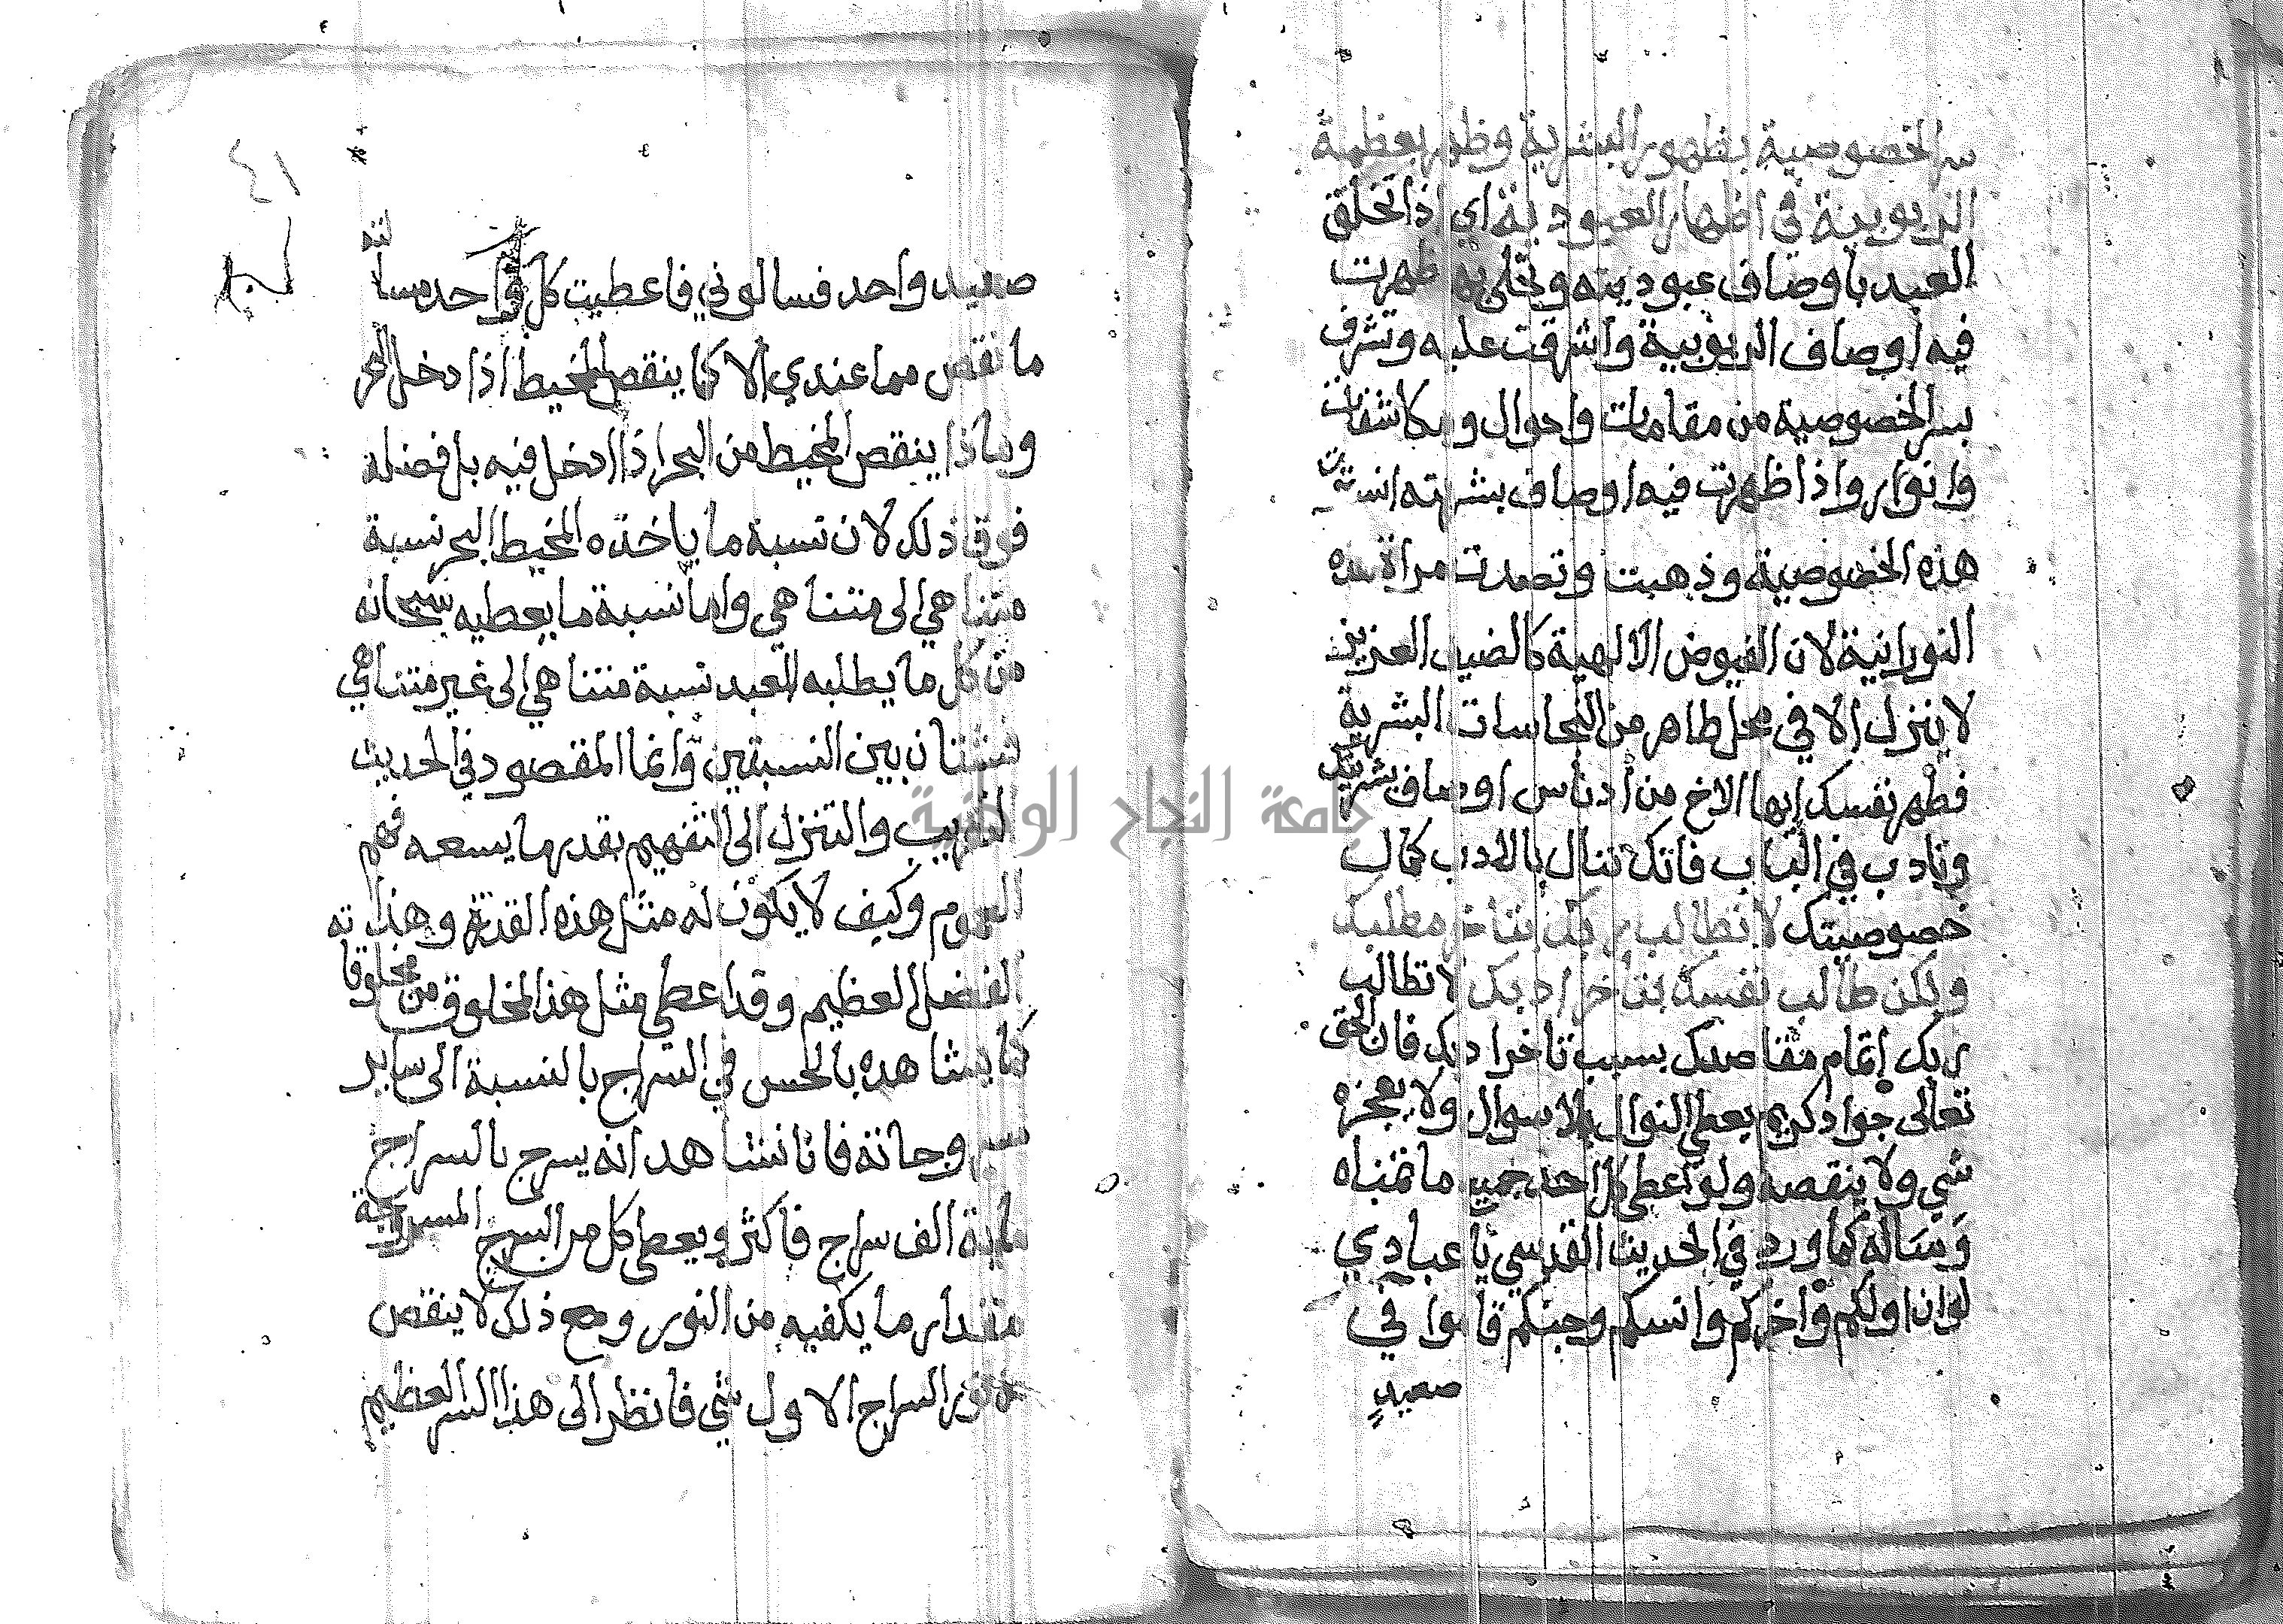 سر الخصوصية بظهور البشرية وظهر بعظمة
الربوبية في اظهار العبودية اي اذا تخلق
العبد باوصاف عبوديته وتحلى بها ظهرت
فيه اوصاف الربوبية واشرقت عليه وتشرف
بسر الخصوصية من مقامات واحوال ومكاشفات
وانوار واذا ظهرت فيه اوصاف بشريته استترت
هذه الخصوصية وذهبت وتصدت مراة سره
النورانية لان الفيوض الالهية كالضيف العزيز
لا ينزل الا في محل طاهر من النجاسات البشرية
فطهر نفسك ايها الاخ من ادناس اوصاف بشريتك
وتادب في الباب فانك تنال بالادب كمال
خصوصيتك لا تطالب ربك بتاخر مطلبك
ولكن طالب نفسك بتاخر ادبك لا تطالب
ربك اتمام مقاصدك بسبب تاخر ادبك فان الحق
تعالى جواد كريم يعطي النوال بلا سوال ولا يعجزه
شي ولا ينقصه ولو اعطى كل احد جميع ما تمناه
وساله كما ورد في الحديث القدسي يا عبادي
لو ان اولكم واخركم وانسكم وجنكم قاموا في
صعيد
٤١
صعيد واحد فسالوني فاعطيت كل واحد مسالته
ما نقص مما عندي الا كما ينقص المخيط اذا دخل البحر
وماذا ينقص المخيط من البحر اذا ادخل فيه بل فضله
فوق ذلك لان نسبة ما ياخذه المخيط البحر نسبة
متناهي الى متناهي واما نسبة ما يعطيه سبحانه
من كل ما يطلبه العبد نسبة متناهي الى غير متناهي
فشتان بين النسبتين وانما المقصود في الحديث
التقريب والتنزل الى التفهيم بقدر ما يسعه فهم
العموم وكيف لا يكون له مثل هذه القدرة وهذا
الفضل العظيم وقد اعطى مثل هذا المخلوق من مخلوقاته
كما يشاهده بالحس في السراج بالنسبة الى ساير
فانا نشاهد انه يسرج بالسراج
ماية الف سراج فاكثر ويعطى كل من السرج المسروجة
مقدار ما يكفيه من النور ومع ذلك لا ينقص
من نور السراج الاول شي فانظر الى هذا السر العظيم
جامعة النجاح الوطنية